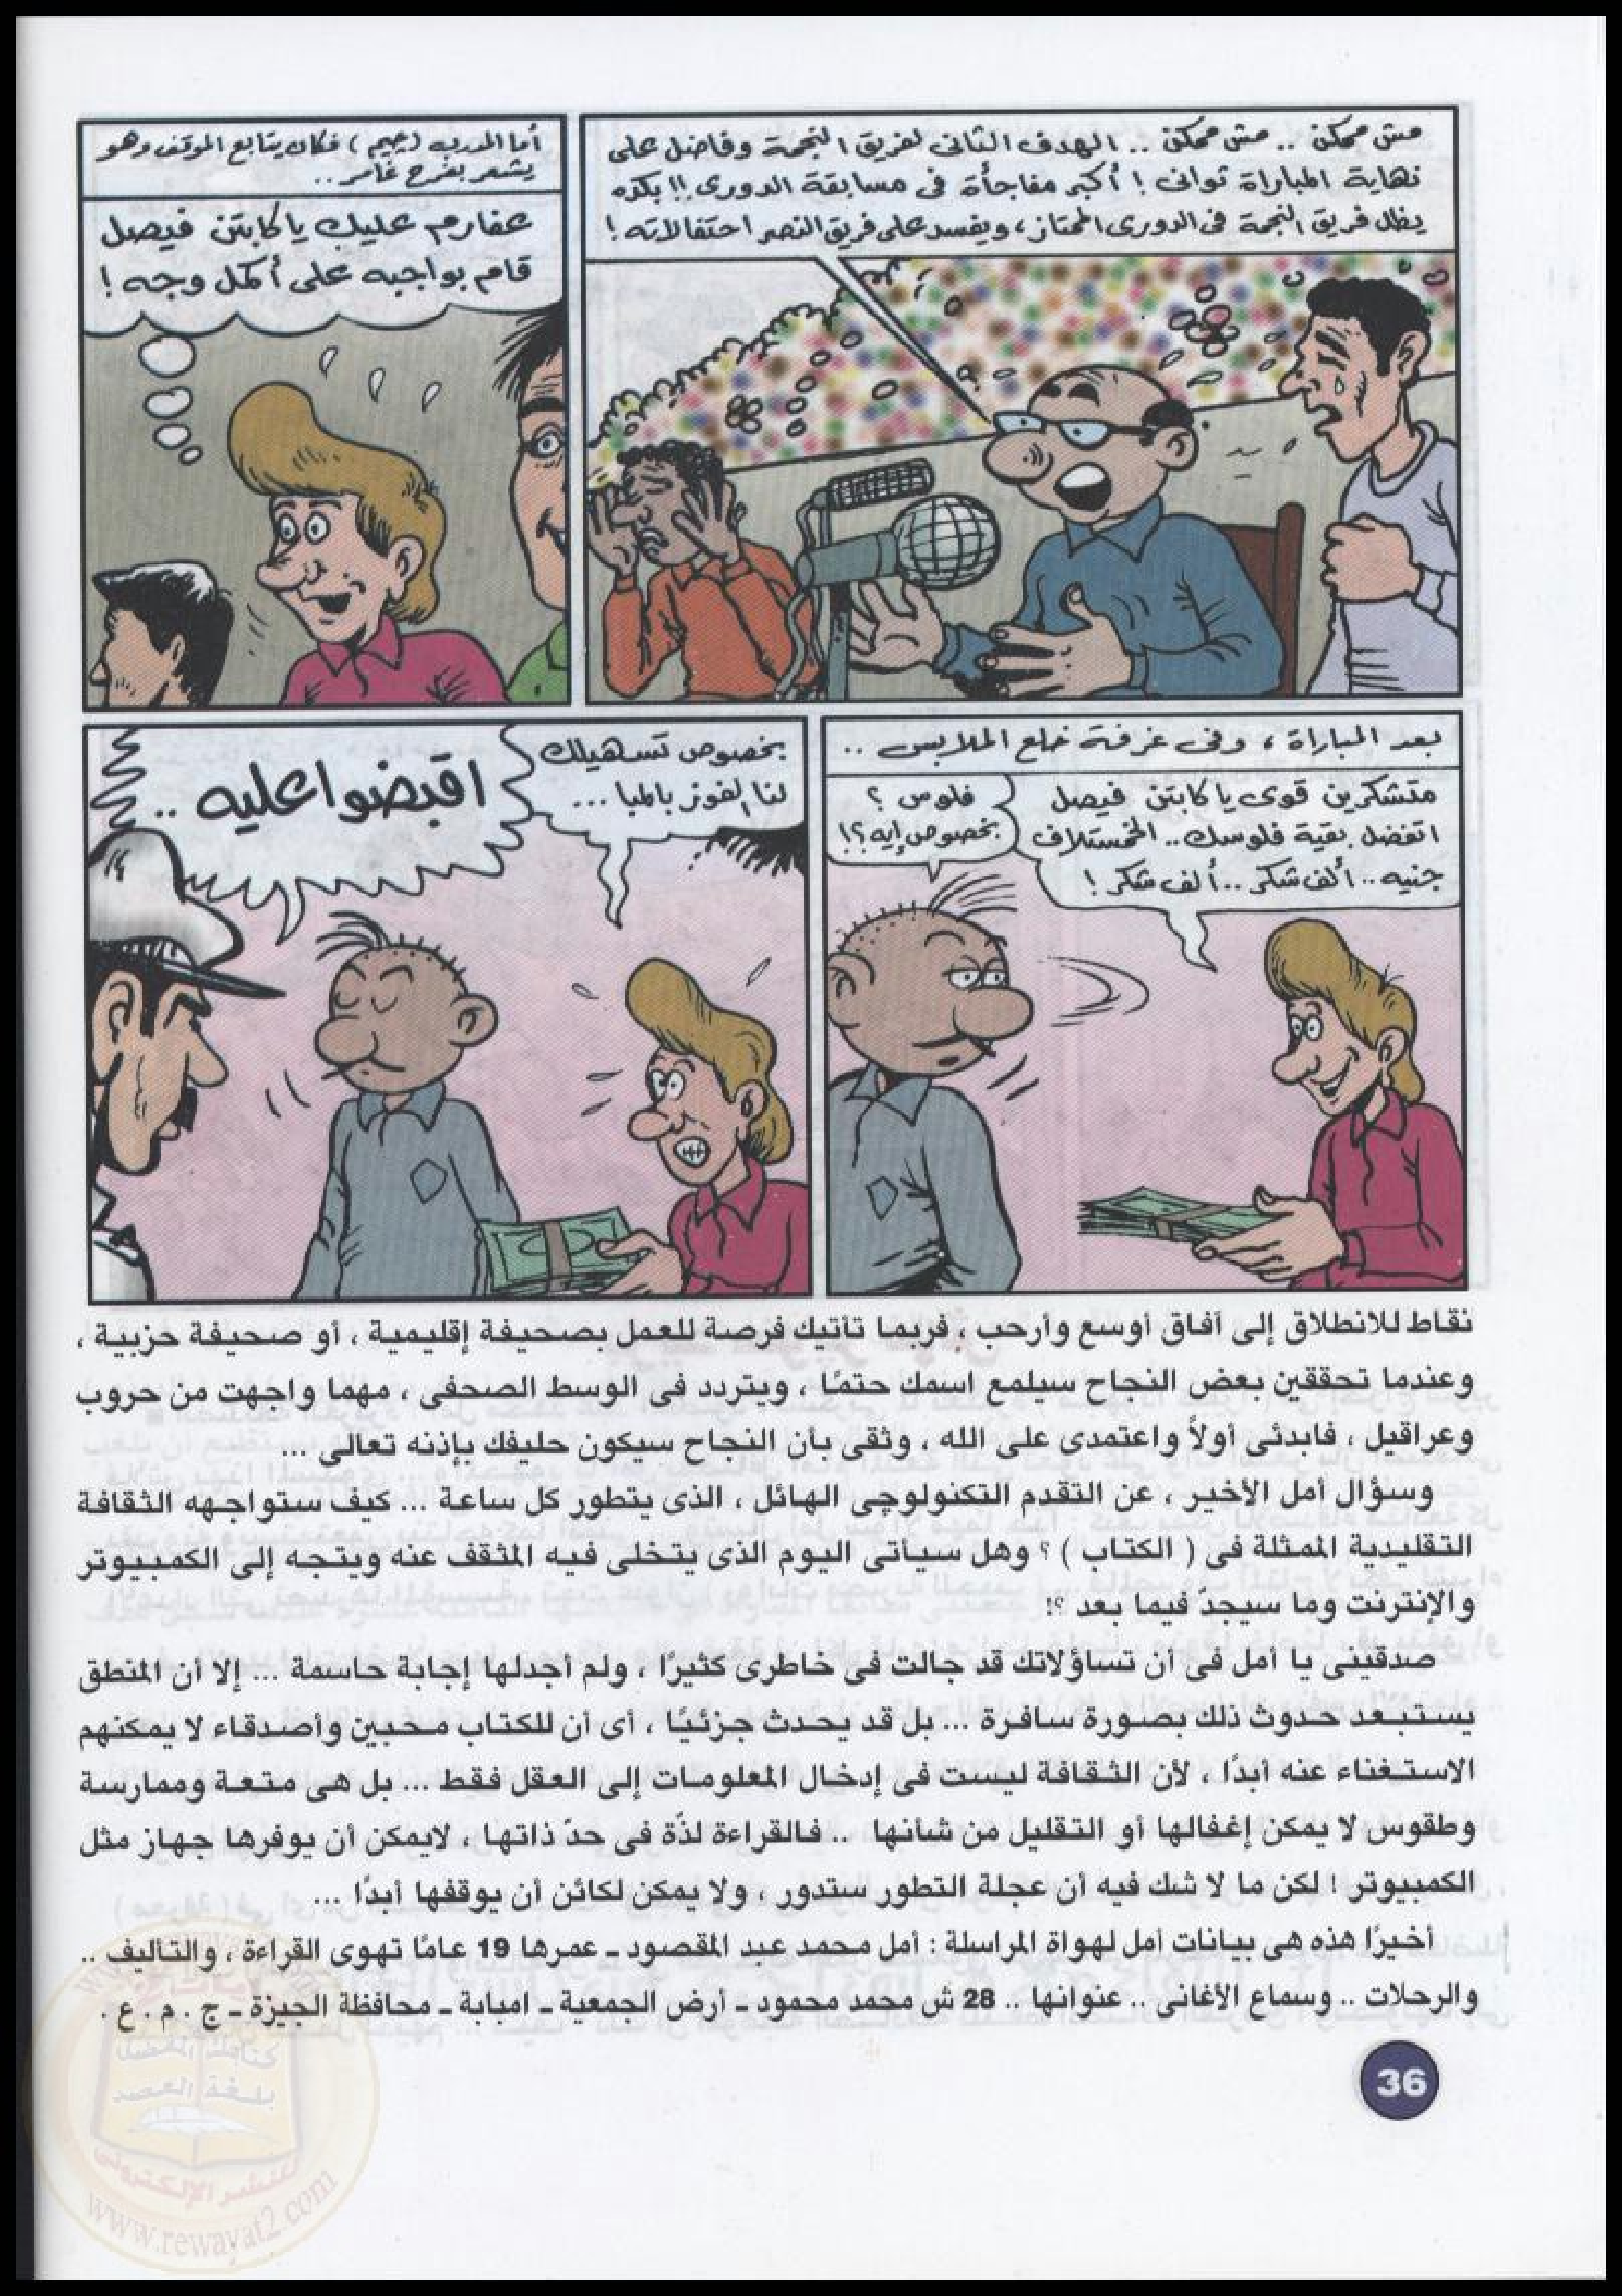 مش ممكن .. مش ممكن .. الهدف الثانى لفريق النجمة وفاضل على
نهاية المباراة ثوانى ! أكبر مفاجأة فى مسابقة الدورى !! بكده
يظل فريق النجمة فى الدورى الممتاز ، ويفسد على فريق النصر احتفالاته !
أما المدرب ( جيم ) فكان يتابع الموقف وهو
يشعر بفرح غامر ..
عفارم عليك يا كابتن فيصل
قام بواجبه على أكمل وجه !
بعد المباراة ، وفى غرفة خلع الملابس ..
متشكرين قوى يا كابتن فيصل
اتفضل بقية فلوسك .. الخمستلاف
جنيه .. ألف شكر .. ألف شكر !
فلوس ؟
بخصوص إيه ؟!
بخصوص تسهيلك
لنا الفوز بالمبا ...
اقبضوا عليه ..
نقاط للانطلاق إلى آفاق أوسع وأرحب ، فربما تأتيك فرصة للعمل بصحيفة إقليمية ، أو صحيفة حزبية ،
وعندما تحققين بعض النجاح سيلمع اسمك حتمًا ، ويتردد فى الوسط الصحفى ، مهما واجهت من حروب
وعراقيل ، فابدئى أولاً واعتمدى على الله ، وثقى بأن النجاح سيكون حليفك بإذنه تعالى ...
وسؤال أمل الأخير ، عن التقدم التكنولوچى الهائل ، الذى يتطور كل ساعة ... كيف ستواجهه الثقافة
التقليدية الممثلة فى ( الكتاب ) ؟ وهل سيأتى اليوم الذى يتخلى فيه المثقف عنه ويتجه إلى الكمبيوتر
والإنترنت وما سيجدّ فيما بعد ؟!
صدقينى يا أمل فى أن تساؤلاتك قد جالت فى خاطرى كثيرًا ، ولم أجدلها إجابة حاسمة ... إلا أن المنطق
يستبعد حدوث ذلك بصورة سافرة ... بل قد يحدث جزئيًا ، أى أن للكتاب محبين وأصدقاء لا يمكنهم
الاستغناء عنه أبدًا ، لأن الثقافة ليست فى إدخال المعلومات إلى العقل فقط ... بل هى متعة وممارسة
وطقوس لا يمكن إغفالها أو التقليل من شأنها .. فالقراءة لذّة فى حدّ ذاتها ، لايمكن أن يوفرها جهاز مثل
الكمبيوتر ! لكن ما لا شك فيه أن عجلة التطور ستدور ، ولا يمكن لكائن أن يوقفها أبدًا ...
أخيرًا هذه هى بيانات أمل لهواة المراسلة : أمل محمد عبد المقصود ـ عمرها 19 عامًا تهوى القراءة ، والتأليف ..
والرحلات .. وسماع الأغانى .. عنوانها .. 28 ش محمد محمود ـ أرض الجمعية ـ امبابة ـ محافظة الجيزة ـ ج . م . ع .
36
للنشر الإلكترونى
www.rewayat2.com